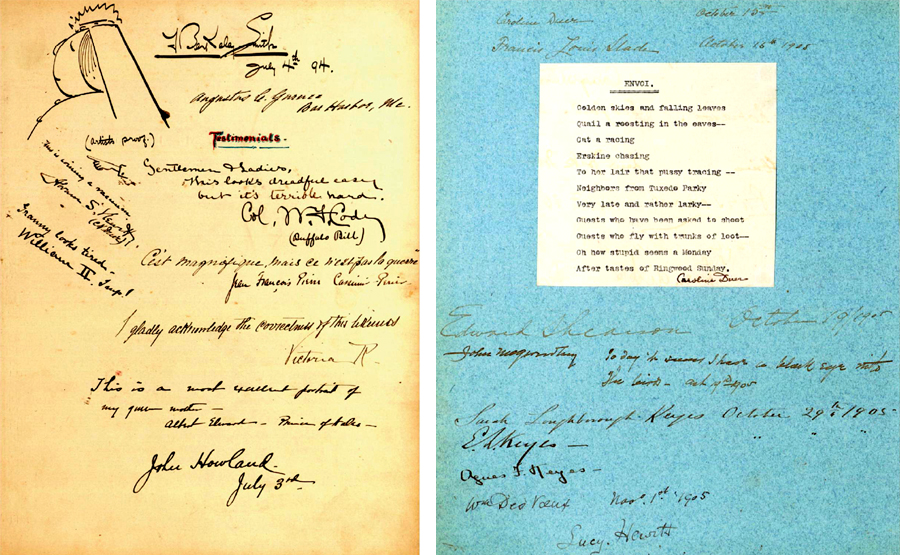 F. Berkeley Smith
July 4th 94.
Augustus C.
Bar Harbor, Me.
(artists proof.)
Testimonials.
Gentlemen & Ladies,
this looks dreadful easy
but it's terrible hard.
Col. W. F. Cody
(Buffalo Bill)
This is winning a
S. Hewitt
Granny looks tired—
William II.
C'est magnifique, mais ce n'est pas la guerre
Jean François Casimir
I gladly acknowledge the correctness of this likeness
Victoria R.
This is a most excellent portrait of
my mother —
Albert Edward — Prince of Wales —
John Howland.
July 3rd
Caroline Duer October 15th
Francis Louis Slade October 16th 1905
ENVOI.
Golden skies and falling leaves
Quail a roosting in the eaves--
Cat a racing
Erskine chasing
To her lair that pussy tracing --
Neighbors from Tuxedo Parky
Very late and rather larky--
Guests who have been asked to shoot
Guests who fly with trunks of loot--
Oh how stupid seems a Monday
After tastes of Ringwood Sunday.
Caroline Duer
Edward Shearson October 1905
John
To day is I have a black eye
The birds — 1905
Sarah Loughborough Keyes October 29th 1905
E. L. Keyes — " " "
Agnes F. Keyes —
Wm DesVoeux Nov. 1st 1905
Lucy Hewitt